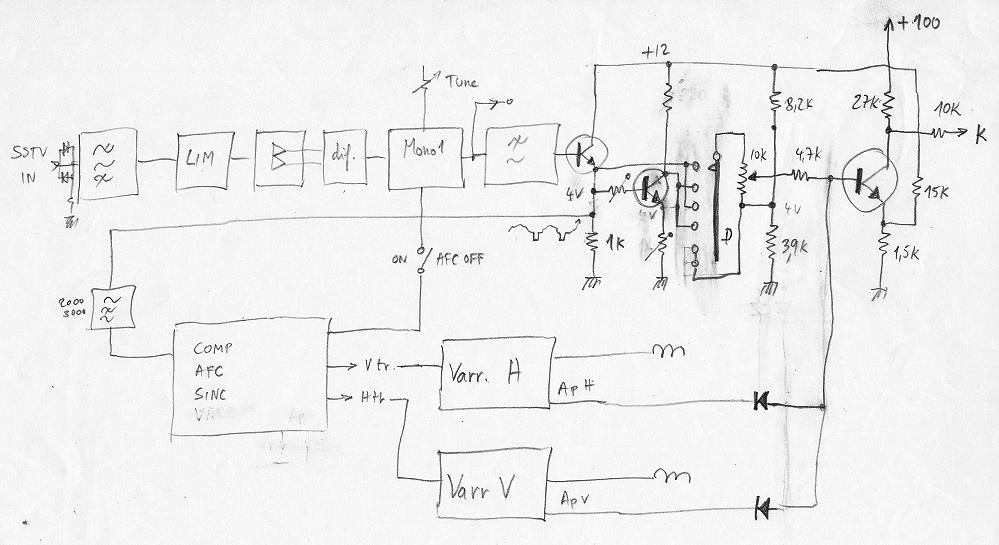 +100
+12
Tune
8,2K
27K
10K
K
SSTV
IN
LIM
dif.
Mono1
10K
4,7K
15K
4V
4V
4V
1K
D
39K
1,5K
ON
AFC OFF
2000
3000
COMP
AFC
SINC
V tr.
Varr. H
Ap H
Varr V
Ap V